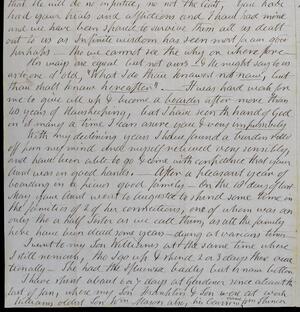 that He will do no injustice, no not the least, You have
had your trials and afflictions and I have had mine
and we have been should be aware them all as dealt
out to us as in finite wisdom has seen best, in our
perhaps. The we cannot see the why or where fore
His ways are equal but not ours. He might say to us
as to one of old, "What I do thou knowest not now, but
thou shalt know hereafter." It was hard work for
me to give all up & become a boarder after more than
40 years of Housekeeping, but I have seen the hand of God
in it many a time I can assure you & very
With my declining years I have found a burden rolled
off from my mind and myself relieved very sensibly,
and have been able to go & come with confidence that your
Aunt was in good hands. After a pleasant year of
boarding in a pious good family. On the 1st days of
May your Aunt went to Augusta to spend some time
in the families of 2 of her connections, one of whom was an
only the a half Sister as we call them, as all the family
here have been dead some years dying at various times
I went to my Son Williams at the same time where
I still remain, tho I go up & spend 2 or 3 days there occa
tionally. She had the Influenza badly but is now better
I have spent about 6 or 7 days at Gardiner since about the
last of Jan, where my Son Franklin & Son were at work
Williams oldest Son Wm Mason also, his Cousin